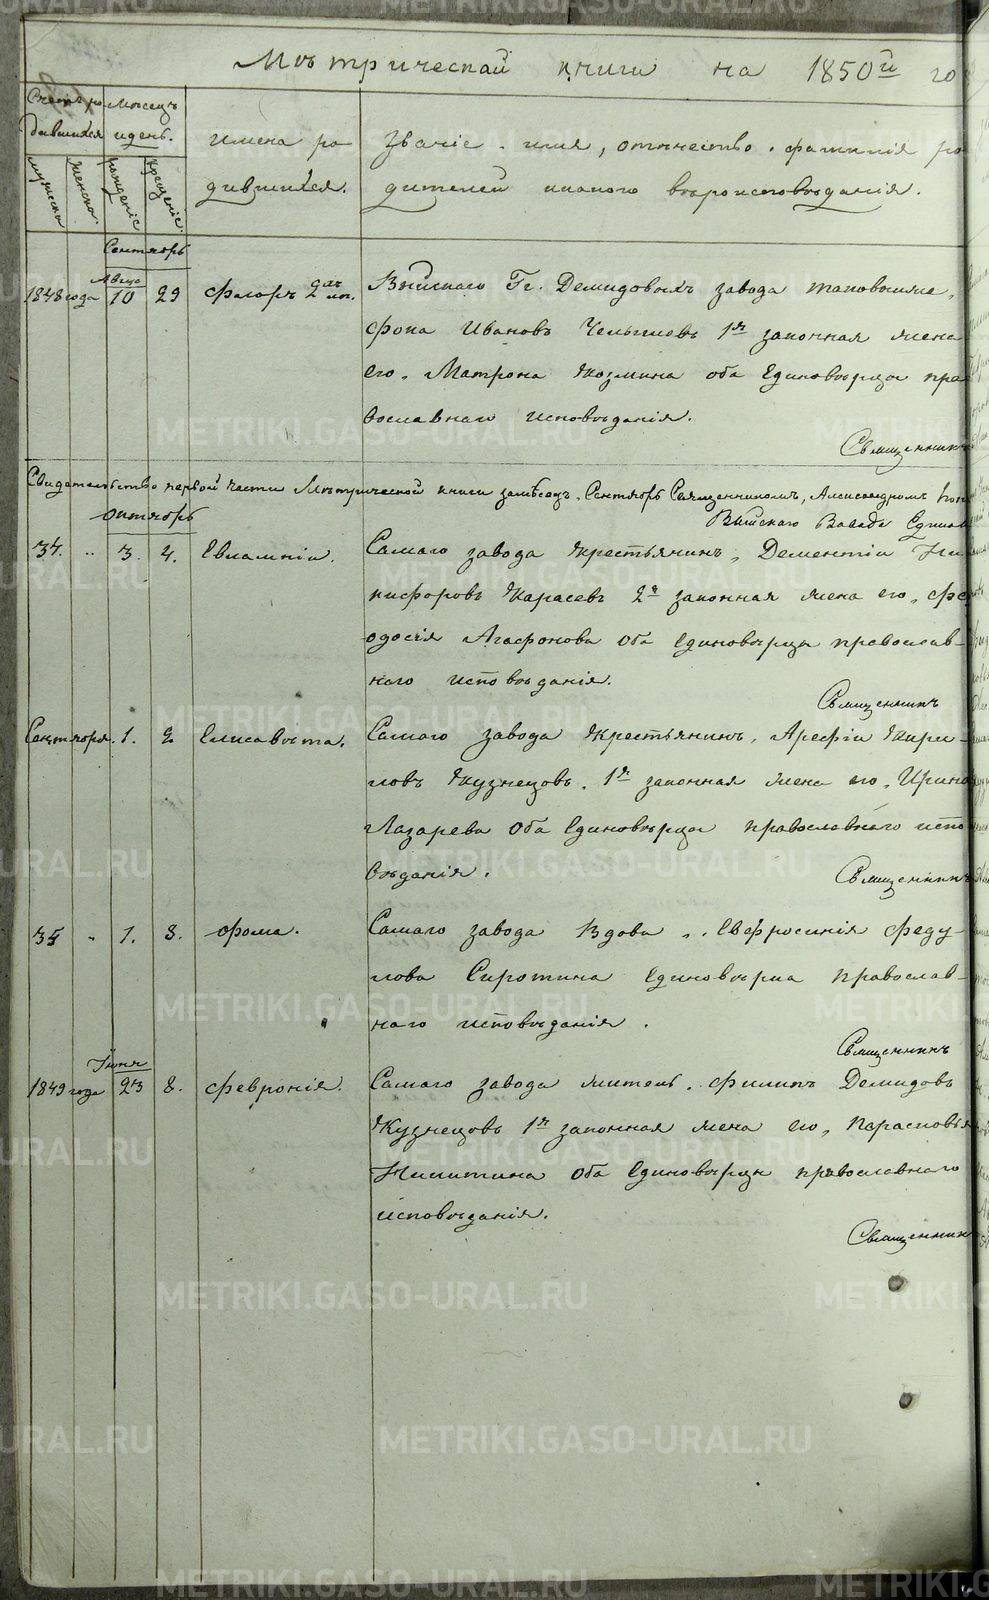 Метрической книги на 1850й го
Счетъ ро
дившихся
Месецъ
и день.
имена ро
дившихся.
Званіе. имя, отечество. фамилія ро
дителей и какого вѣроисповѣданія.
мужеска
женска.
рожденіе
крещеніе.
Сентябрь
1848 года
10 29 Флоръ
Выйскаго Гг. Демидовыхъ завода
Ивановъ 1я законная жена
его, Матрона Козмина оба Единовѣрцы пра
вославнаго исповѣданія.
Священникъ
Свидетельство первой части Метрической книги за месецъ Сентябрь Священникомъ, Александромъ
Выйскаго Завода
октябрь
34. " 3. 4. Евлампіи.
Самаго завода крестьянинъ, Дементіи Ни
кифоровъ Карасевъ 2я законная жена его, Фе
одосія Агафонова оба Единовѣрцы православ-
наго исповѣданія.
Священникъ
Сентября. 1. 2. Елисавета.
Самаго завода крестьянинъ, Арефіи Кири-
ловъ Кузнецовъ. 1я законная жена его, Ирина
Лазарева оба Единовѣрцы православнаго испо
вѣданія.
Священникъ
35 " 7. 8. Фома.
Самаго завода Вдова, Евфросинія Феду-
лова Сиротина Единовѣрка православ-
наго исповѣданія.
Священникъ
Іюня
1849 года 23 8. Февронія.
Самаго завода житель, Филипъ Демидовъ
Кузнецовъ 1я законная жена его, Парасковья
Никитина оба Единовѣрцы православнаго
исповѣданія.
Священник
METRIKI.GASO-URAL.RU